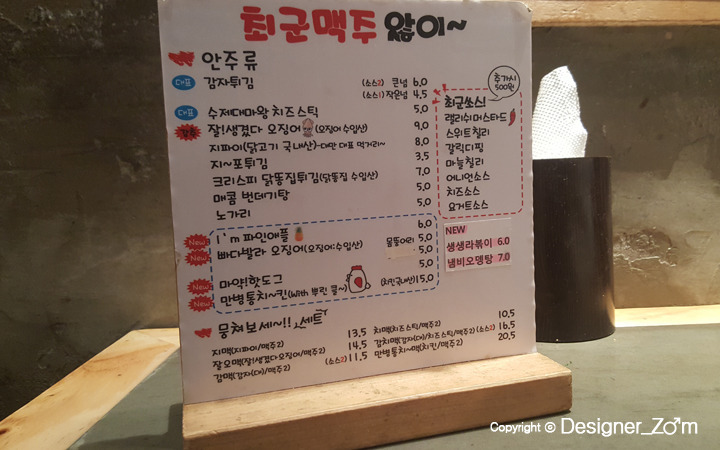 최군맥주 앓이~
안주류
대표 감자튀김 (소스2) 큰넘 6.0
(소스1) 작은넘 4.5
대표 수제대마왕 치즈스틱 5.0
잘!생겼다 오징어 (오징어 수입산) 9.0
지파이(닭고기 국내산)-대만 대표 먹거리~ 8.0
지~포튀김 3.5
크리스피 닭똥집튀김(닭똥집 수입산) 7.0
매콤 번데기탕 5.0
노가리 5.0
추가시 500원
최군쏘스!
랠리쉬머스타드
스위트칠리
갈릭디핑
마늘칠리
어니언소스
치즈소스
요거트소스
New I'm 파인애플 6.0
New 빠다발라 오징어(오징어:수입산) 몸뚱아리 5.0
5.0
New 마약!핫도그 5.0
New 만병통치~킨(with 뿌린 쿨~) (치킨국내산) 15.0
NEW
생생라볶이 6.0
냄비오뎅탕 7.0
뭉쳐보세~!! 세트
지맥(지파이/맥주2) 13.5
잘오맥(잘!생겼다오징어/맥주2) 14.5
감맥(감자(대)/맥주2) (소스2) 11.5
치맥(치즈스틱/맥주2) 10.5
감치맥(감자(대)/치즈스틱/맥주2) (소스2) 16.5
만병통치~맥(치킨/맥주2) 20.5
Copyright © Designer_Zoom